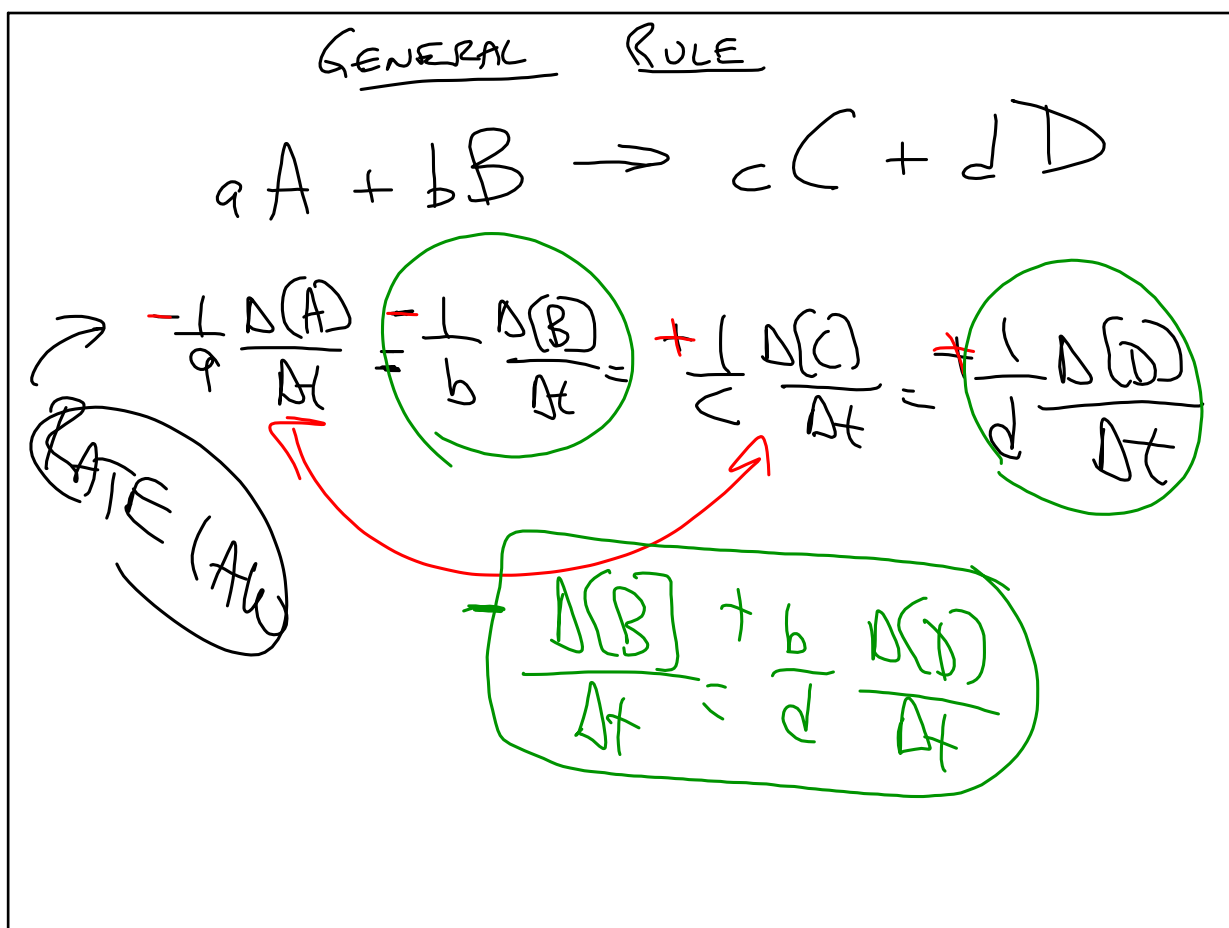 GENERAL RULE
aA + bB → cC + dD
-1/a Δ[A]/Δt = -1/b Δ[B]/Δt = +1/c Δ[C]/Δt = +1/d Δ[D]/Δt
RATE LAW
- Δ[B]/Δt = + b/d Δ[D]/Δt